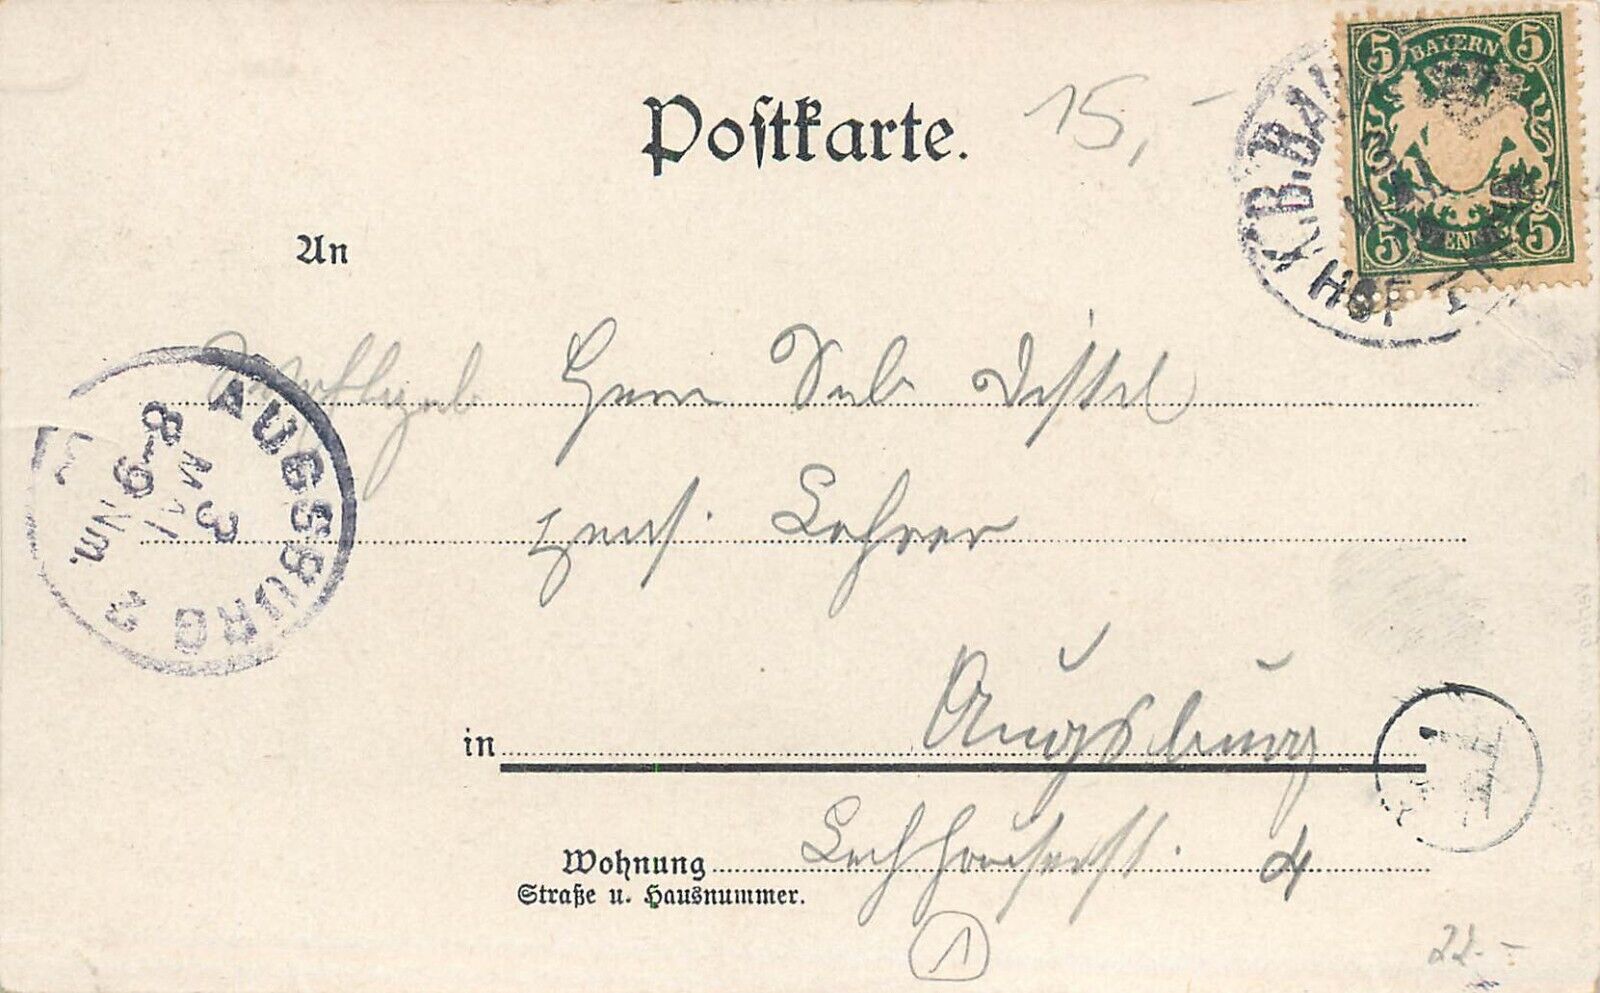 Postkarte.
15,-
BAYERN
5 5
5 5
PFENNIG
K.B.BA
HOF
An
Wohlgeb. Herrn Seb. Distel
pens. Lehrer
AUGSBURG 2
3 MAI
8-9 Nm.
in Augsburg
Wohnung Lechhauserstr. 4
Straße u. Hausnummer.
1
22.-